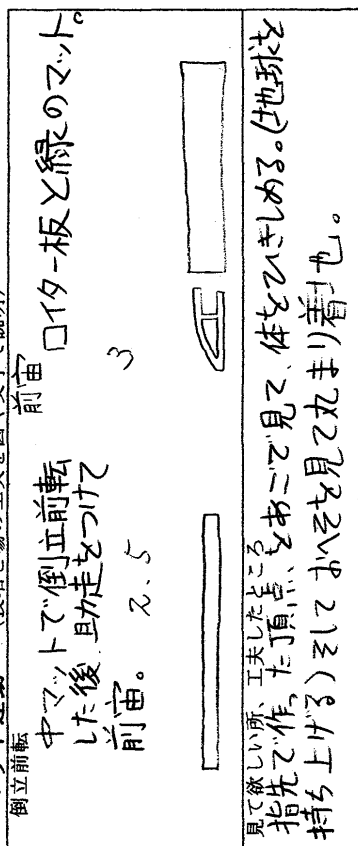 倒立前転
中マットで倒立前転
した後、助走をつけて
前宙。
2.5
前宙
ロイター板と緑のマット。
3
見て欲しい所、工夫したところ
指先で作った頂点をあごで見て、体をひきしめる。(地球を
持ち上げる)そしておへそを見て丸まり着地。